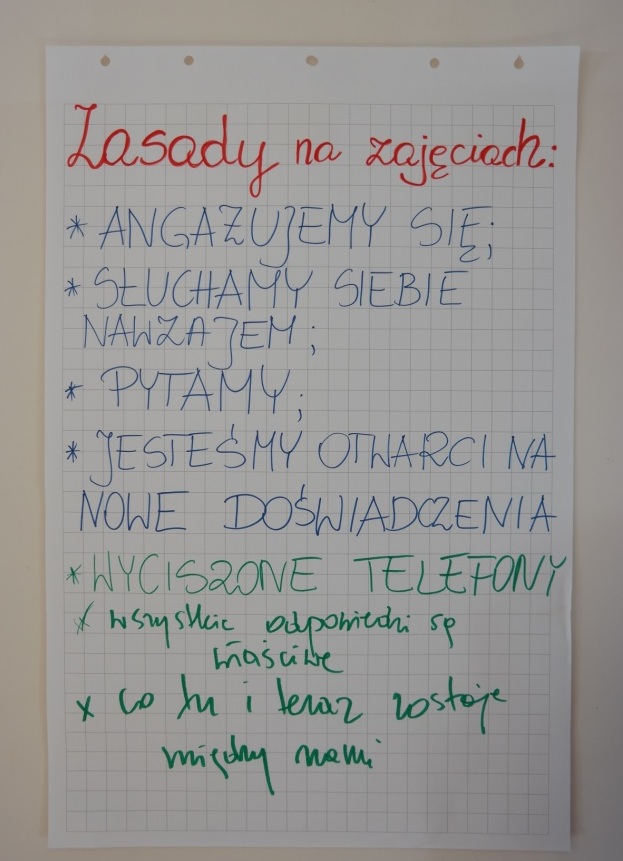 Zasady na zajęciach:
* ANGAŻUJEMY SIĘ;
* SŁUCHAMY SIEBIE
NAWZAJEM;
* PYTAMY;
* JESTEŚMY OTWARCI NA
NOWE DOŚWIADCZENIA
* WYCISZONE TELEFONY
x wszystkie odpowiedzi są
właściwe
x co tu i teraz zostaje
między nami